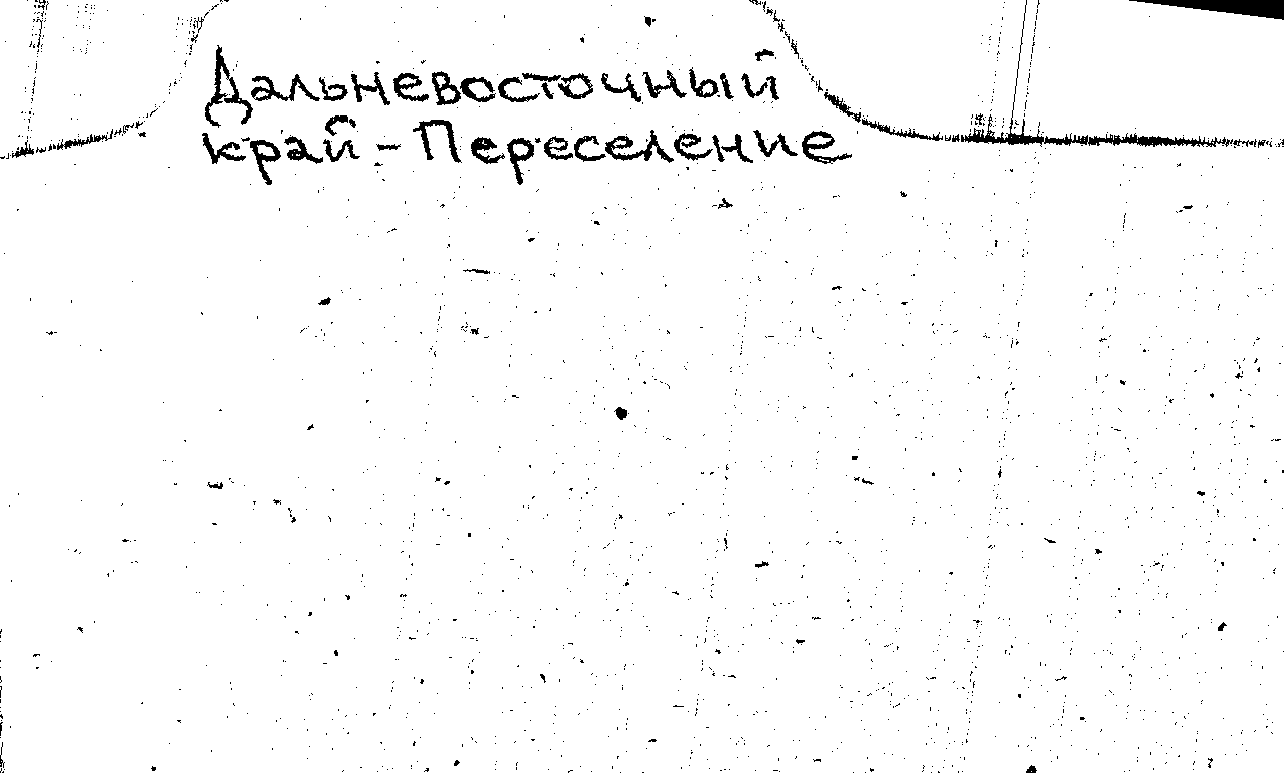 Дальневосточный
край - Переселение